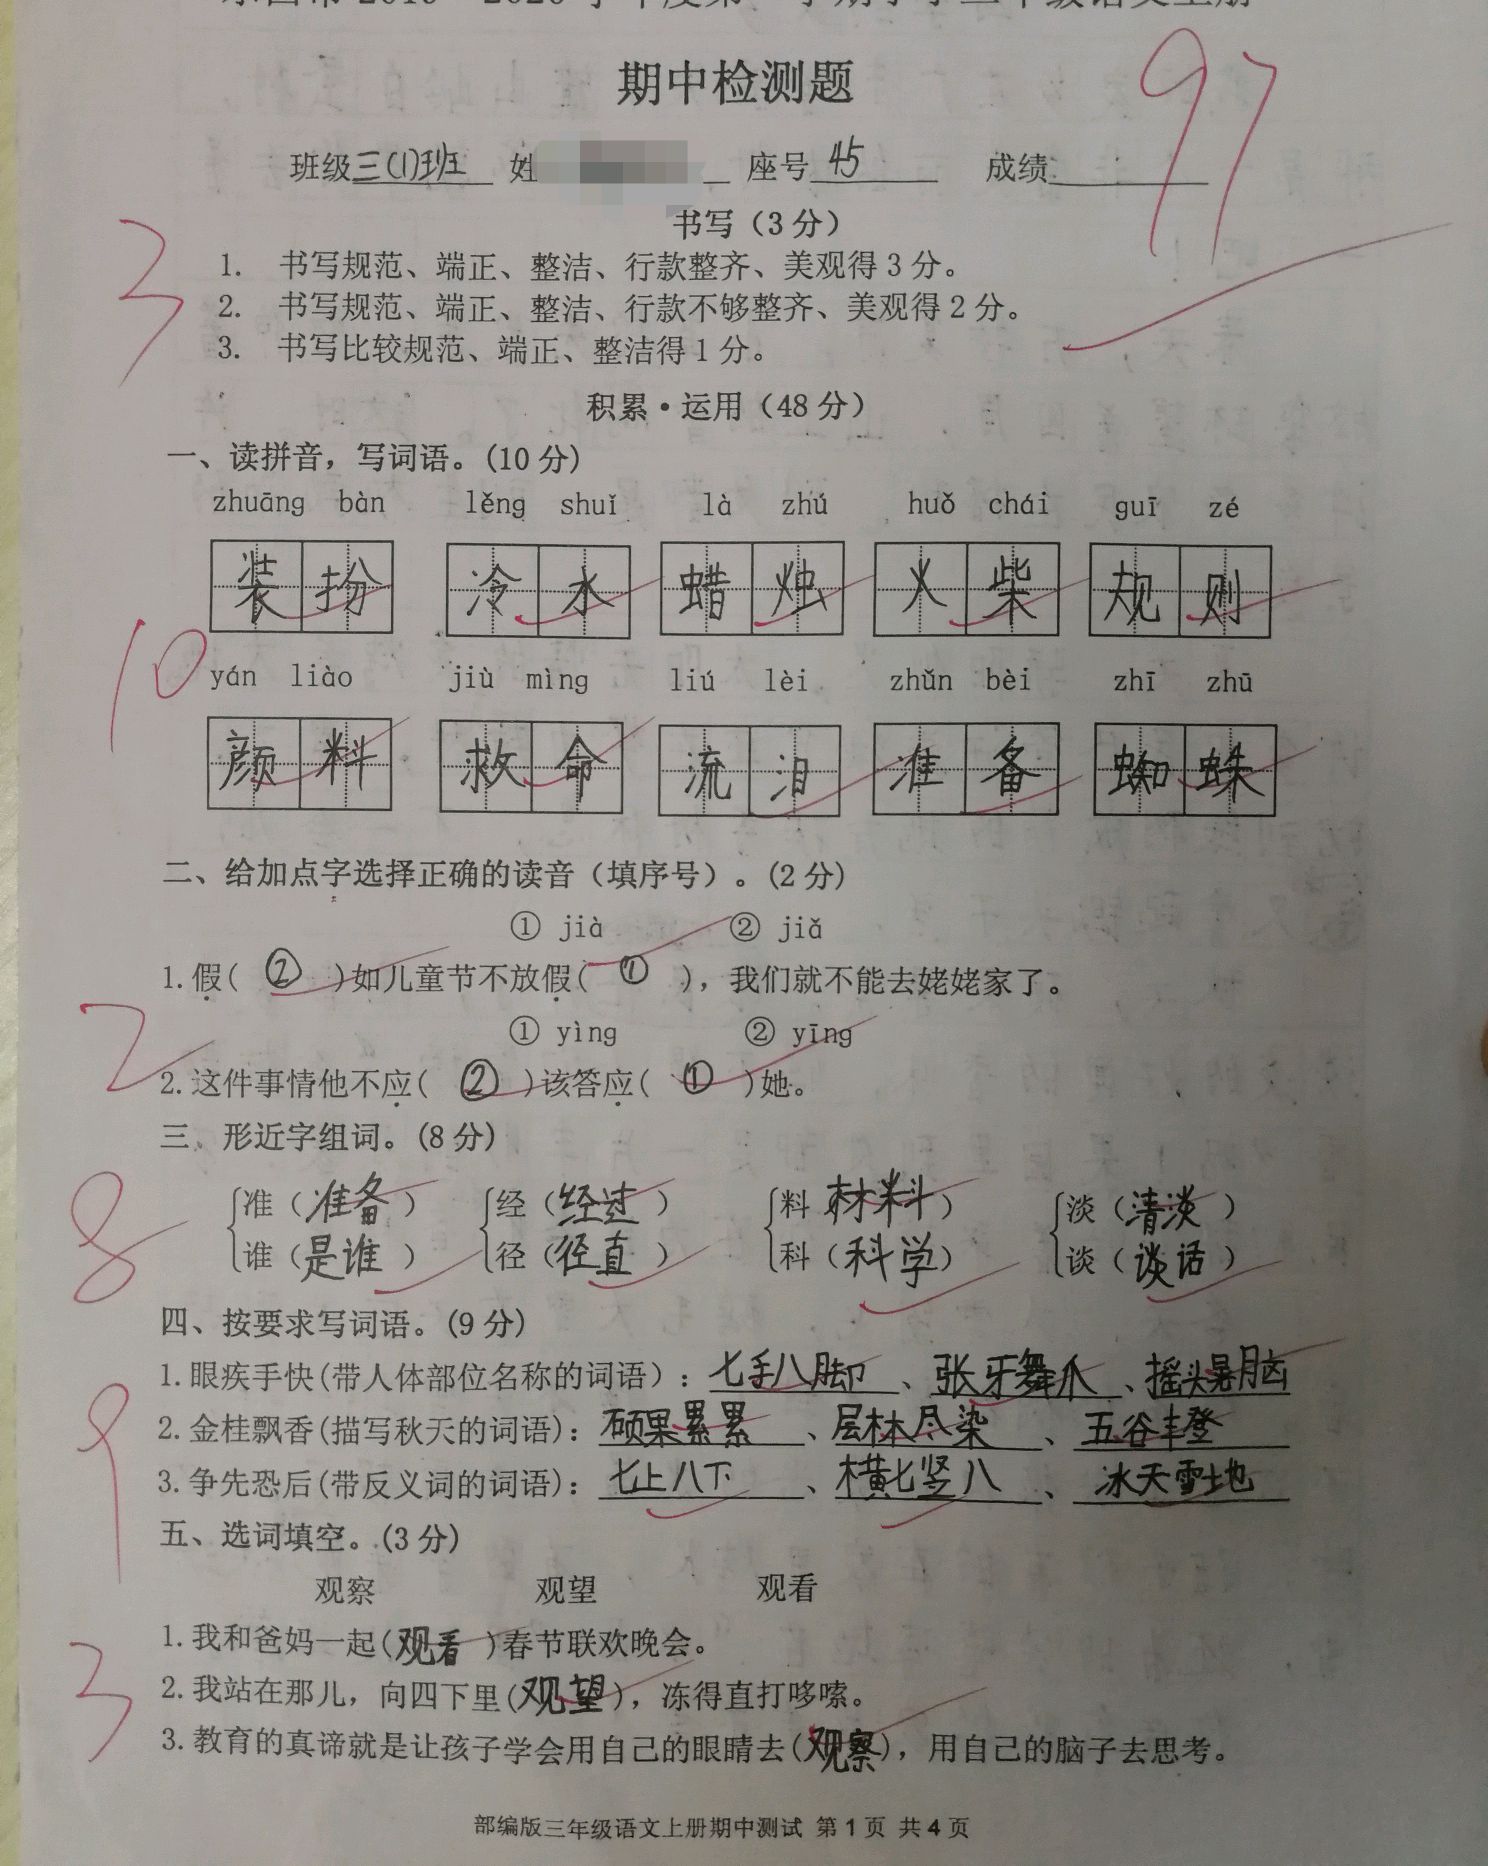 期中检测题
97
班级三(1)班 姓 座号45 成绩
书写（3分）
3
1. 书写规范、端正、整洁、行款整齐、美观得3分。
2. 书写规范、端正、整洁、行款不够整齐、美观得2分。
3. 书写比较规范、端正、整洁得1分。
积累·运用（48分）
一、读拼音，写词语。(10分)
zhuāng bàn lěng shuǐ là zhú huǒ chái guī zé
装扮 冷水 蜡烛 火柴 规则
10
yán liào jiù mìng liú lèi zhǔn bèi zhī zhū
颜料 救命 流泪 准备 蜘蛛
二、给加点字选择正确的读音（填序号）。(2分)
① jià ② jiǎ
1.假( ② )如儿童节不放假( ① )，我们就不能去姥姥家了。
① yìng ② yīng
2
2.这件事情他不应( ② )该答应( ① )她。
三、形近字组词。(8分)
准（准备） 经（经过） 料（材料） 淡（清淡）
8
谁（是谁） 径（径直） 科（科学） 谈（谈话）
四、按要求写词语。(9分)
1.眼疾手快(带人体部位名称的词语)：七手八脚、张牙舞爪、摇头晃脑
9
2.金桂飘香(描写秋天的词语)：硕果累累、层林尽染、五谷丰登
3.争先恐后(带反义词的词语)：七上八下、横七竖八、冰天雪地
五、选词填空。(3分)
观察 观望 观看
1.我和爸妈一起(观看)春节联欢晚会。
3
2.我站在那儿，向四下里(观望)，冻得直打哆嗦。
3.教育的真谛就是让孩子学会用自己的眼睛去(观察)，用自己的脑子去思考。
部编版三年级语文上册期中测试 第1页 共4页